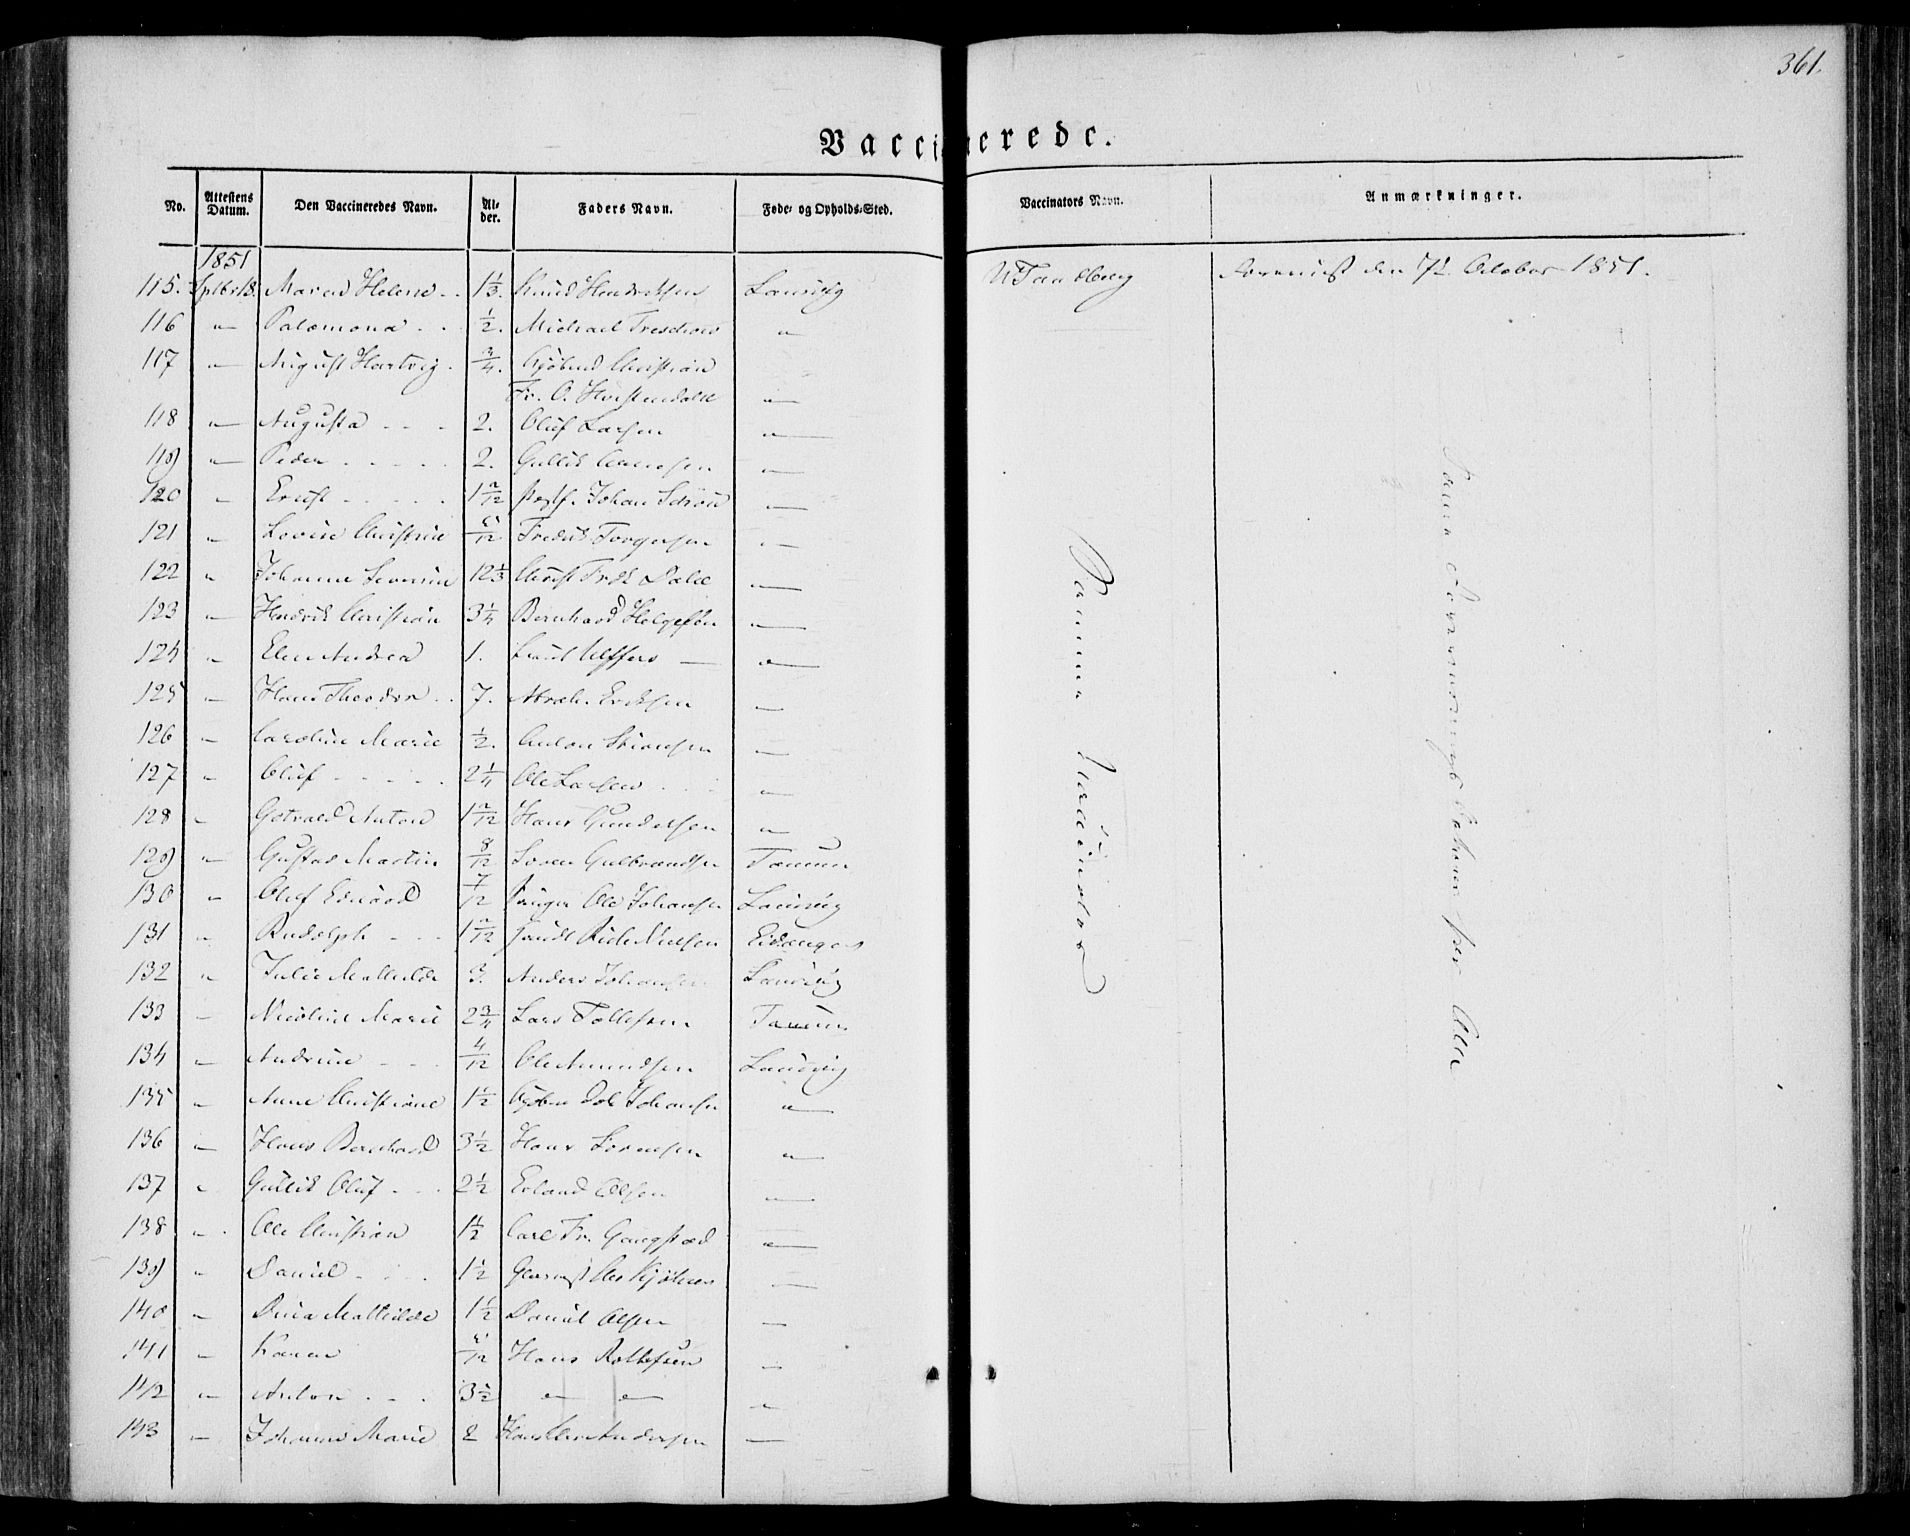 361.
Vaccinerede.
No. Attestens Datum. Den Vaccineredes Navn. Alder. Faders Navn. Føde- og Opholds-Sted. Vaccinators Navn. Anmærkninger.
1851
115. Sptbr 13. Maren Helene 1 1/3. Knud Hendriksen Laurvig Tandberg den 7de October 1851.
116 " Palemona 1/2. Michael Treschow "
117 " August Hartvig 3/4. Christian
Fr. O. "
118 " Augusta 2. Oluf Larsen "
119 " Peder 2. Gullik "
120 " Ernst 1 2/12 Johan "
121 " Lovise Christine /12 Fredrik Torgersen "
122 " Johanne Severine 12 1/3 Christ Fredk Dahl "
123 " Hendrik Christian 3 1/4 Bernhard Helgesen "
124 " Elen Andrea 1. "
125 " Hans Theodor 7. Abrah. Eriksen "
126 " Caroline Marie 1/2. Anton "
127 " Oluf 2 1/4 Ole Larsen "
128 " Gotvald Anton 1 2/12 Hans Gundersen "
129 " Gustav Martin 8/12 Søren Gulbrandsen Tanum
130 " Oluf Eduard 7/12 Ole Johansen Laurvig
131 " Rudolph 1 2/12 Nielsen Eidanger
132 " Julie Mathilde 3. Anders Johansen Laurvig
133 " Nicoline Marie 2 3/4 Lars Tollefsen Tanum
134 " Andrine 4/12 Ole Amundsen Laurvig
135 " Anne Christiane 1 1/2 Johansen "
136 " Hans Bernhard 3 1/2 Hans Sørensen "
137 " Gullik Oluf 2 1/2 Erland Olsen "
138 " Ole Christian 1 1/2 Carl Fr. Gangstad "
139 " Daniel 1 1/2 "
140 " Dina Mathilde 1 1/2 Daniel Olsen "
141 " Karen /12 Hans Rollefsen "
142 " Anton 3 1/2 " " "
143 " Johanne Marie 2 Andersen "
Samme Vaccinator
Samme per Alle